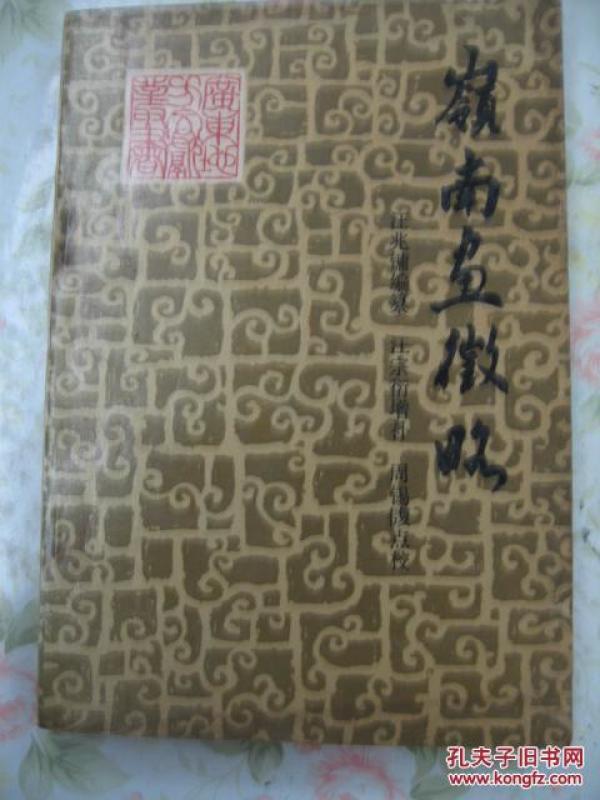 嶺南畫徵略
汪兆鏞編纂 汪宗衍增補 周錫䪖点校
廣東地
方文獻
叢書
孔夫子旧书网
www.kongfz.com